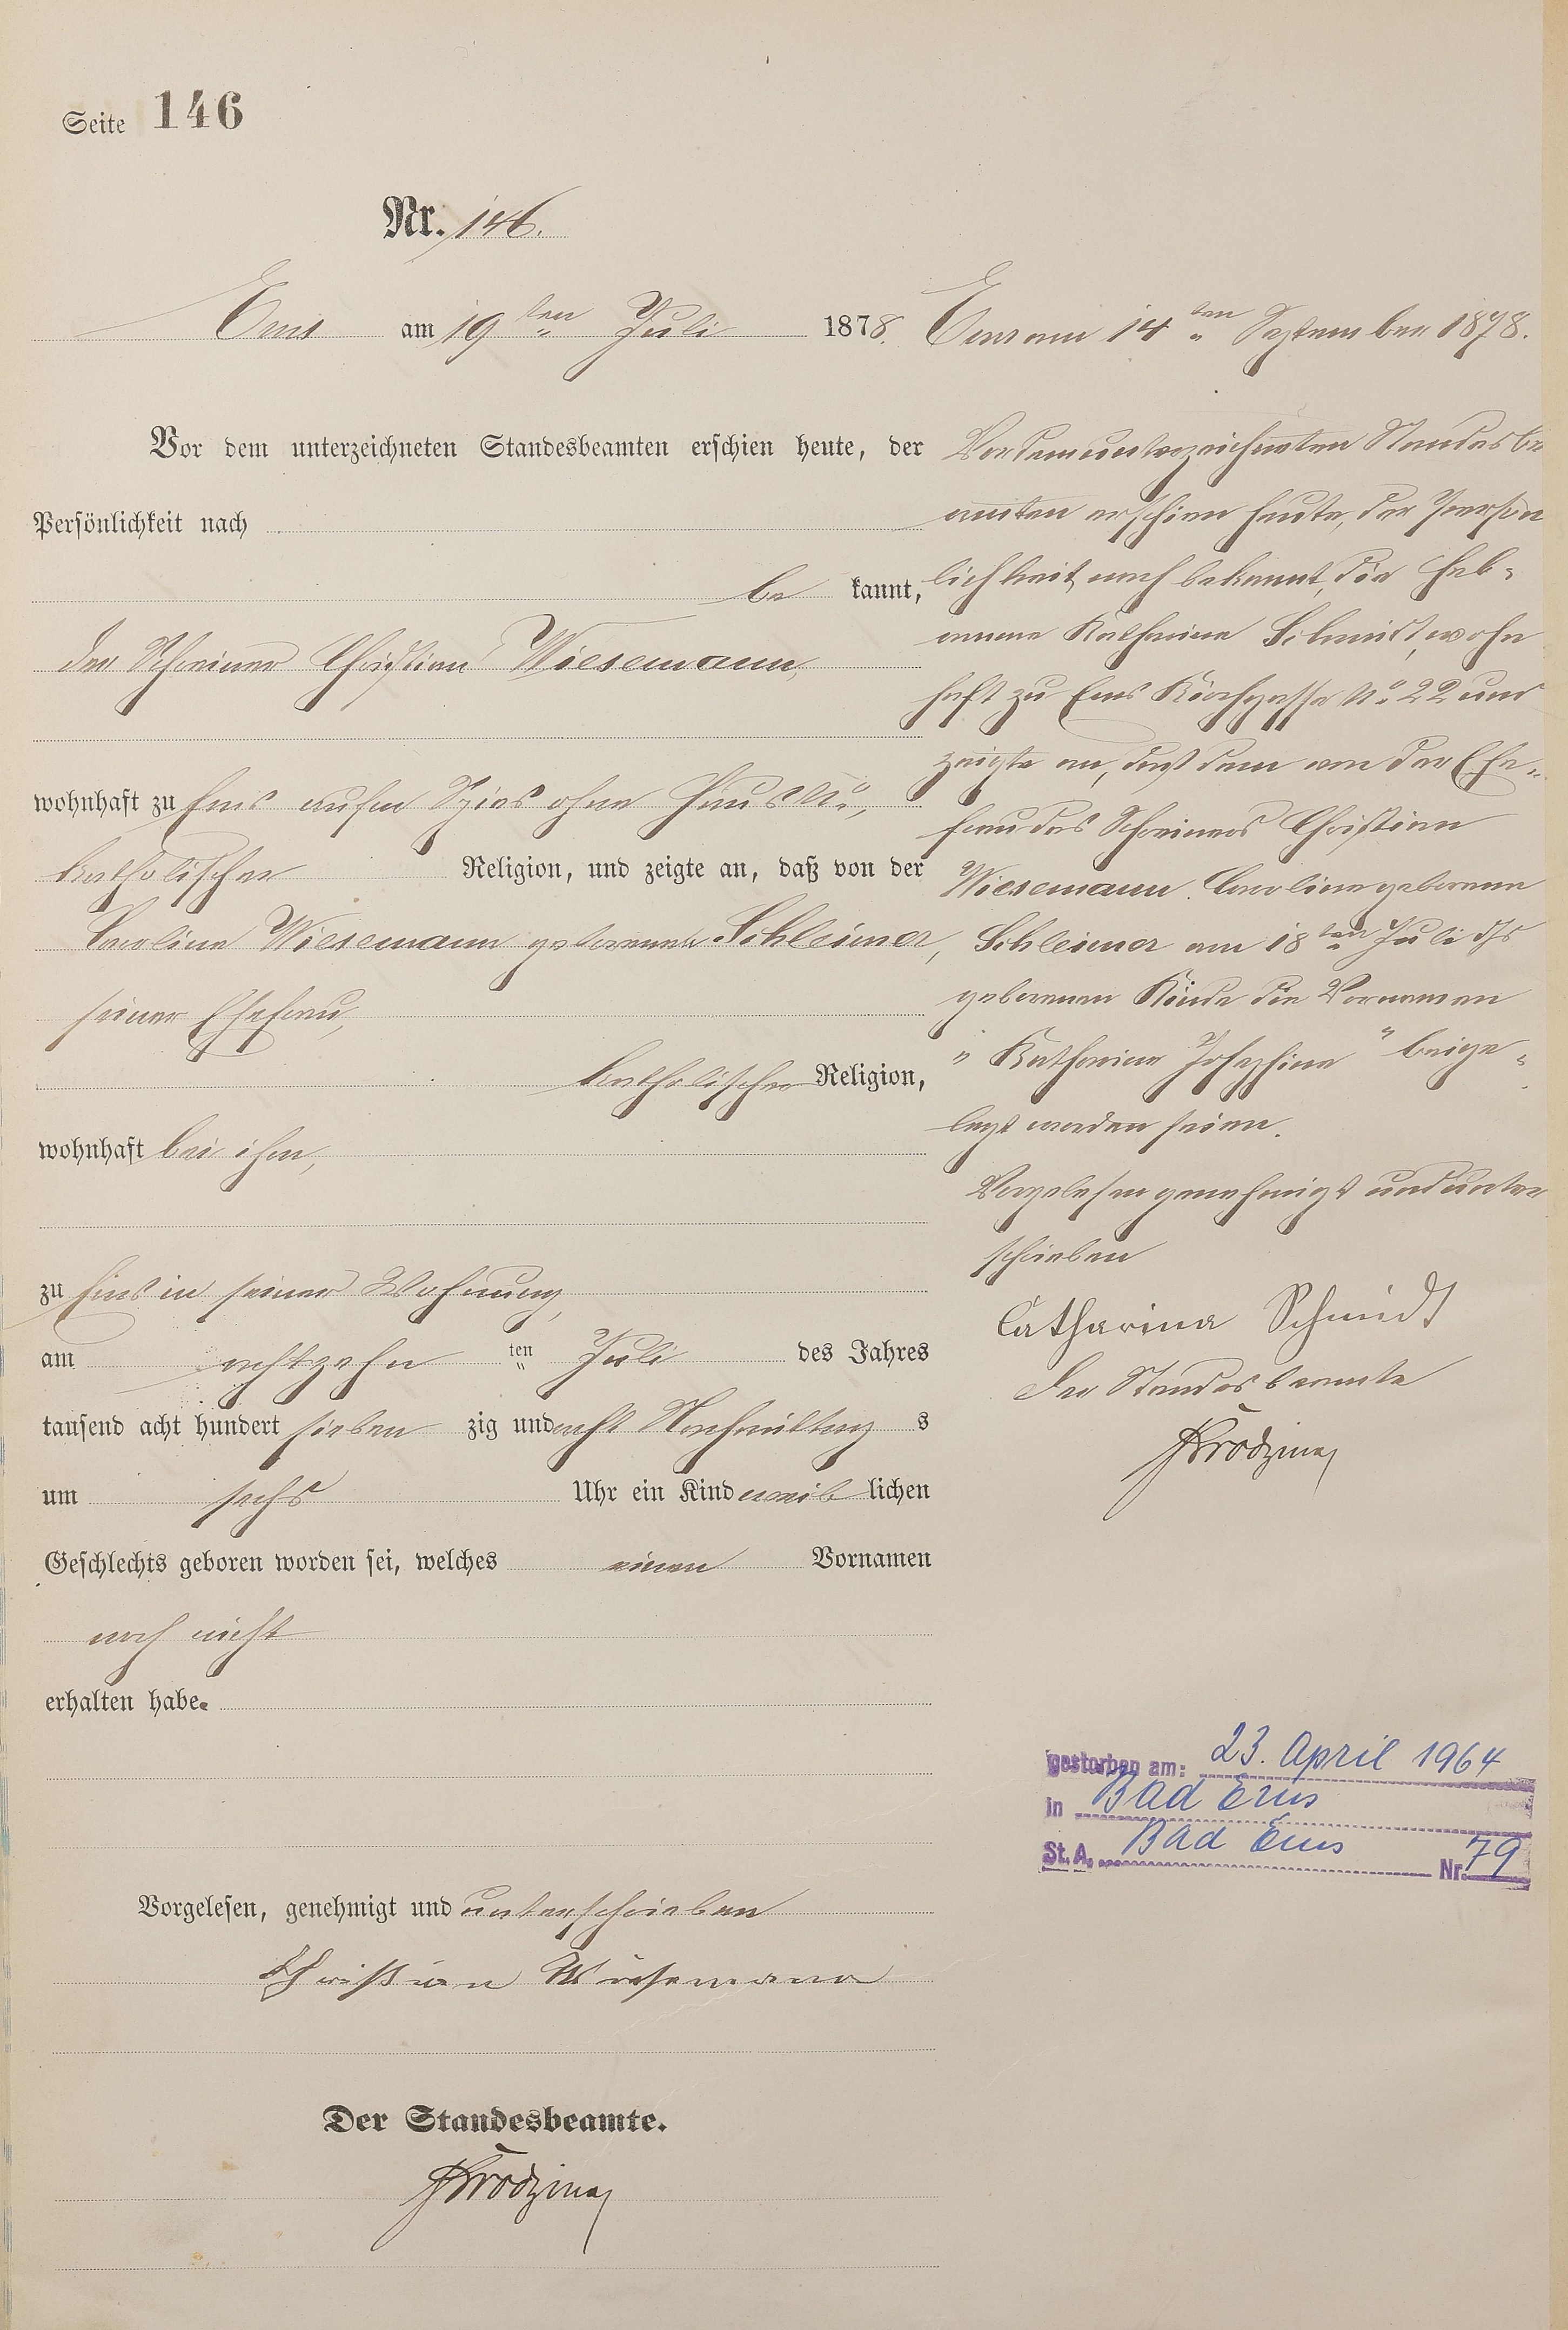 Seite 146
Nr. 146.
Ems am 19ten Juli 1878.
Vor dem unterzeichneten Standesbeamten erschien heute, der
Persönlichkeit nach
be kannt,
der Schreiner Christian Wiesemann,
wohnhaft zu Ems aufm Spies ohne Haus No,
katholischer Religion, und zeigte an, daß von der
Caroline Wiesemann geborenen Schleimer,
seiner Ehefrau,
katholischer Religion,
wohnhaft bei ihm,
zu Ems in seiner Wohnung,
am achtzehn ten Juli des Jahres
tausend acht hundert sieben zig und acht Nachmittag s
um sechs Uhr ein Kind weib lichen
Geschlechts geboren worden sei, welches einen Vornamen
noch nicht
erhalten habe.
Vorgelesen, genehmigt und unterschrieben
Christian Wiesemann
Der Standesbeamte.
Ems am 14ten September 1878.
Vor dem unterzeichneten Standesbe
amten erschien heute, der Persön
lichkeit nach bekannt, die Heb-
amme Katharina Schmidt, wohn
haft zu Ems Kirchgasse No 22 und
zeigte an, daß dem von der Ehe-
frau des Schreiners Christian
Wiesemann, Caroline geborenen
Schleimer am 18ten Juli dJs
geborenen Kinde die Vornamen
"Katharina Josephina" beige-
legt worden seien.
Vorgelesen genehmigt und unter
schrieben
Catharina Schmidt
Der Standesbeamte
gestorben am: 23. April 1964
in Bad Ems
St. A. Bad Ems Nr. 79